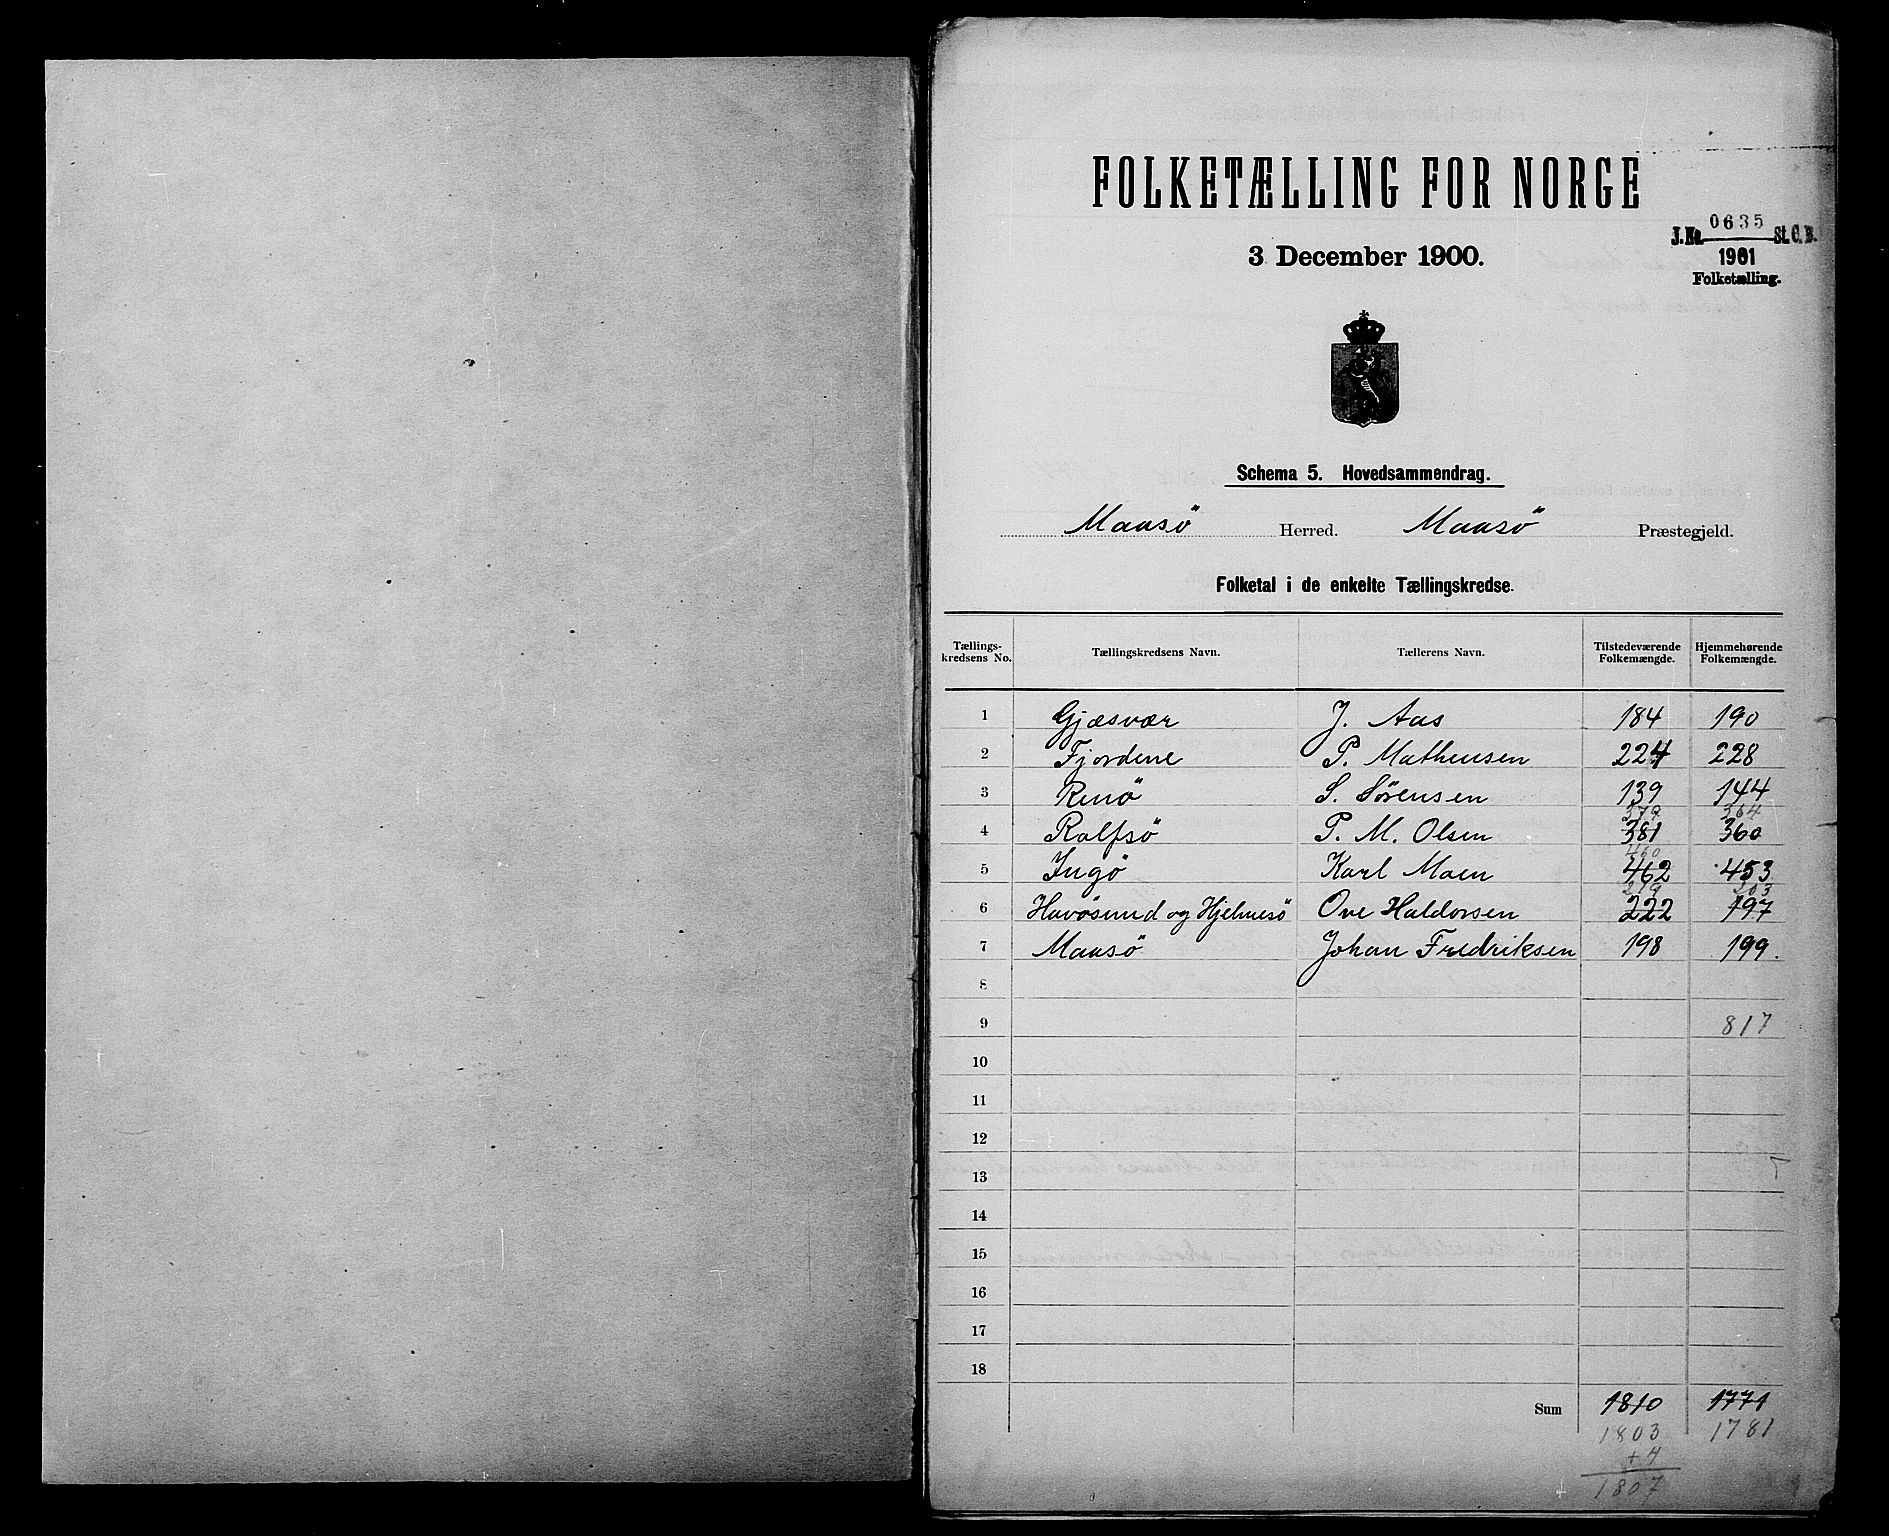 FOLKETÆLLING FOR NORGE
J.No. 0635 St. C. B.
1901
Folketælling.
3 December 1900.
Schema 5. Hovedsammendrag.
Maasö Herred. Maasö Præstegjeld.
Folketal i de enkelte Tællingskredse.
Tællings-kredsens No. Tællingskredsens Navn. Tællerens Navn. Tilstedeværende Folkemængde. Hjemmehørende Folkemængde.
1 Gjæsvær J. Aas 184 190
2 Fjordene P. Matheusen 224 228
3 Renö S. Sörensen 139 144
379 364
4 Rolfsö P. M. Olsen 381 360
460
5 Ingö Karl Moen 462 453
219 203
6 Havösund og Hjelmesö Ove Haldorsen 222 197
7 Maasö Johan Fredriksen 198 199.
8
9 817
10
11
12
13
14
15
16
17
18
Sum 1810 1771
1803 1781
+4
1807